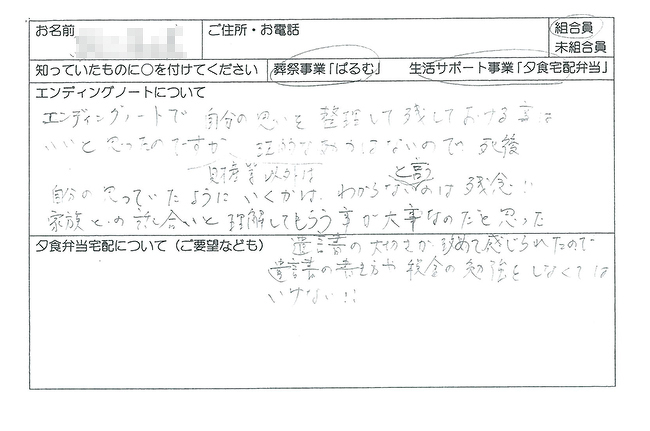 お名前
ご住所・お電話
組合員
未組合員
知っていたものに○を付けてください
葬祭事業「ぱるむ」
生活サポート事業「夕食宅配弁当」
エンディングノートについて
エンディングノートで 自分の思いを 整理して残しておける事は
いいと思ったのですが、法的な効力はないので 死後
財産等以外は と言う
自分の思っていたようにいくかは、わからないのは 残念!!
家族との話し合いと理解してもらう事が大事なのだと思った
夕食弁当宅配について(ご要望なども)
遺言書の大切さが 改めて感じられたので
遺言書の書き方や 税金の勉強をしなくては
いけない!!